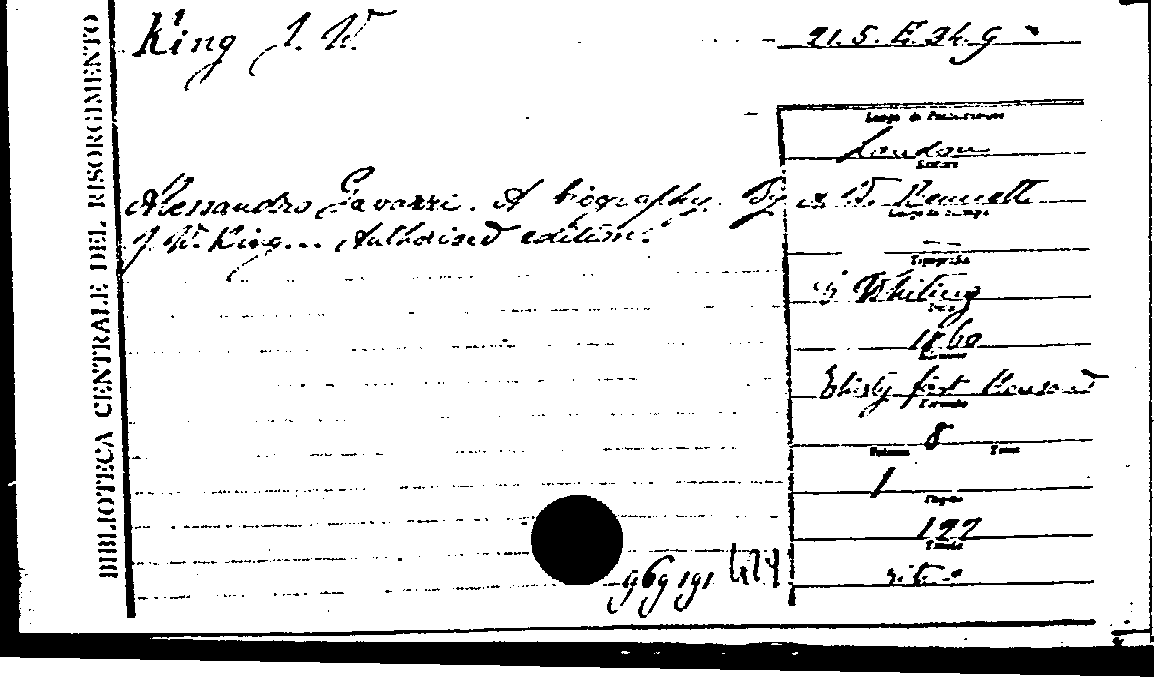 BIBLIOTECA CENTRALE DEL RISORGIMENTO
King J. W.
21. 5. E. 34. 9
Luogo di Pubblicazione
London
Editore
Alessandro Gavazzi. A biography. By
J. W. King... Authorised edition.
W. Kennett
Luogo di Stampa
—
Tipografia
Whiting
Data
1860
Edizione
Thirty first thousand
Formato
8
Volume Tomo
1
Pagine
197
Tavole
969191